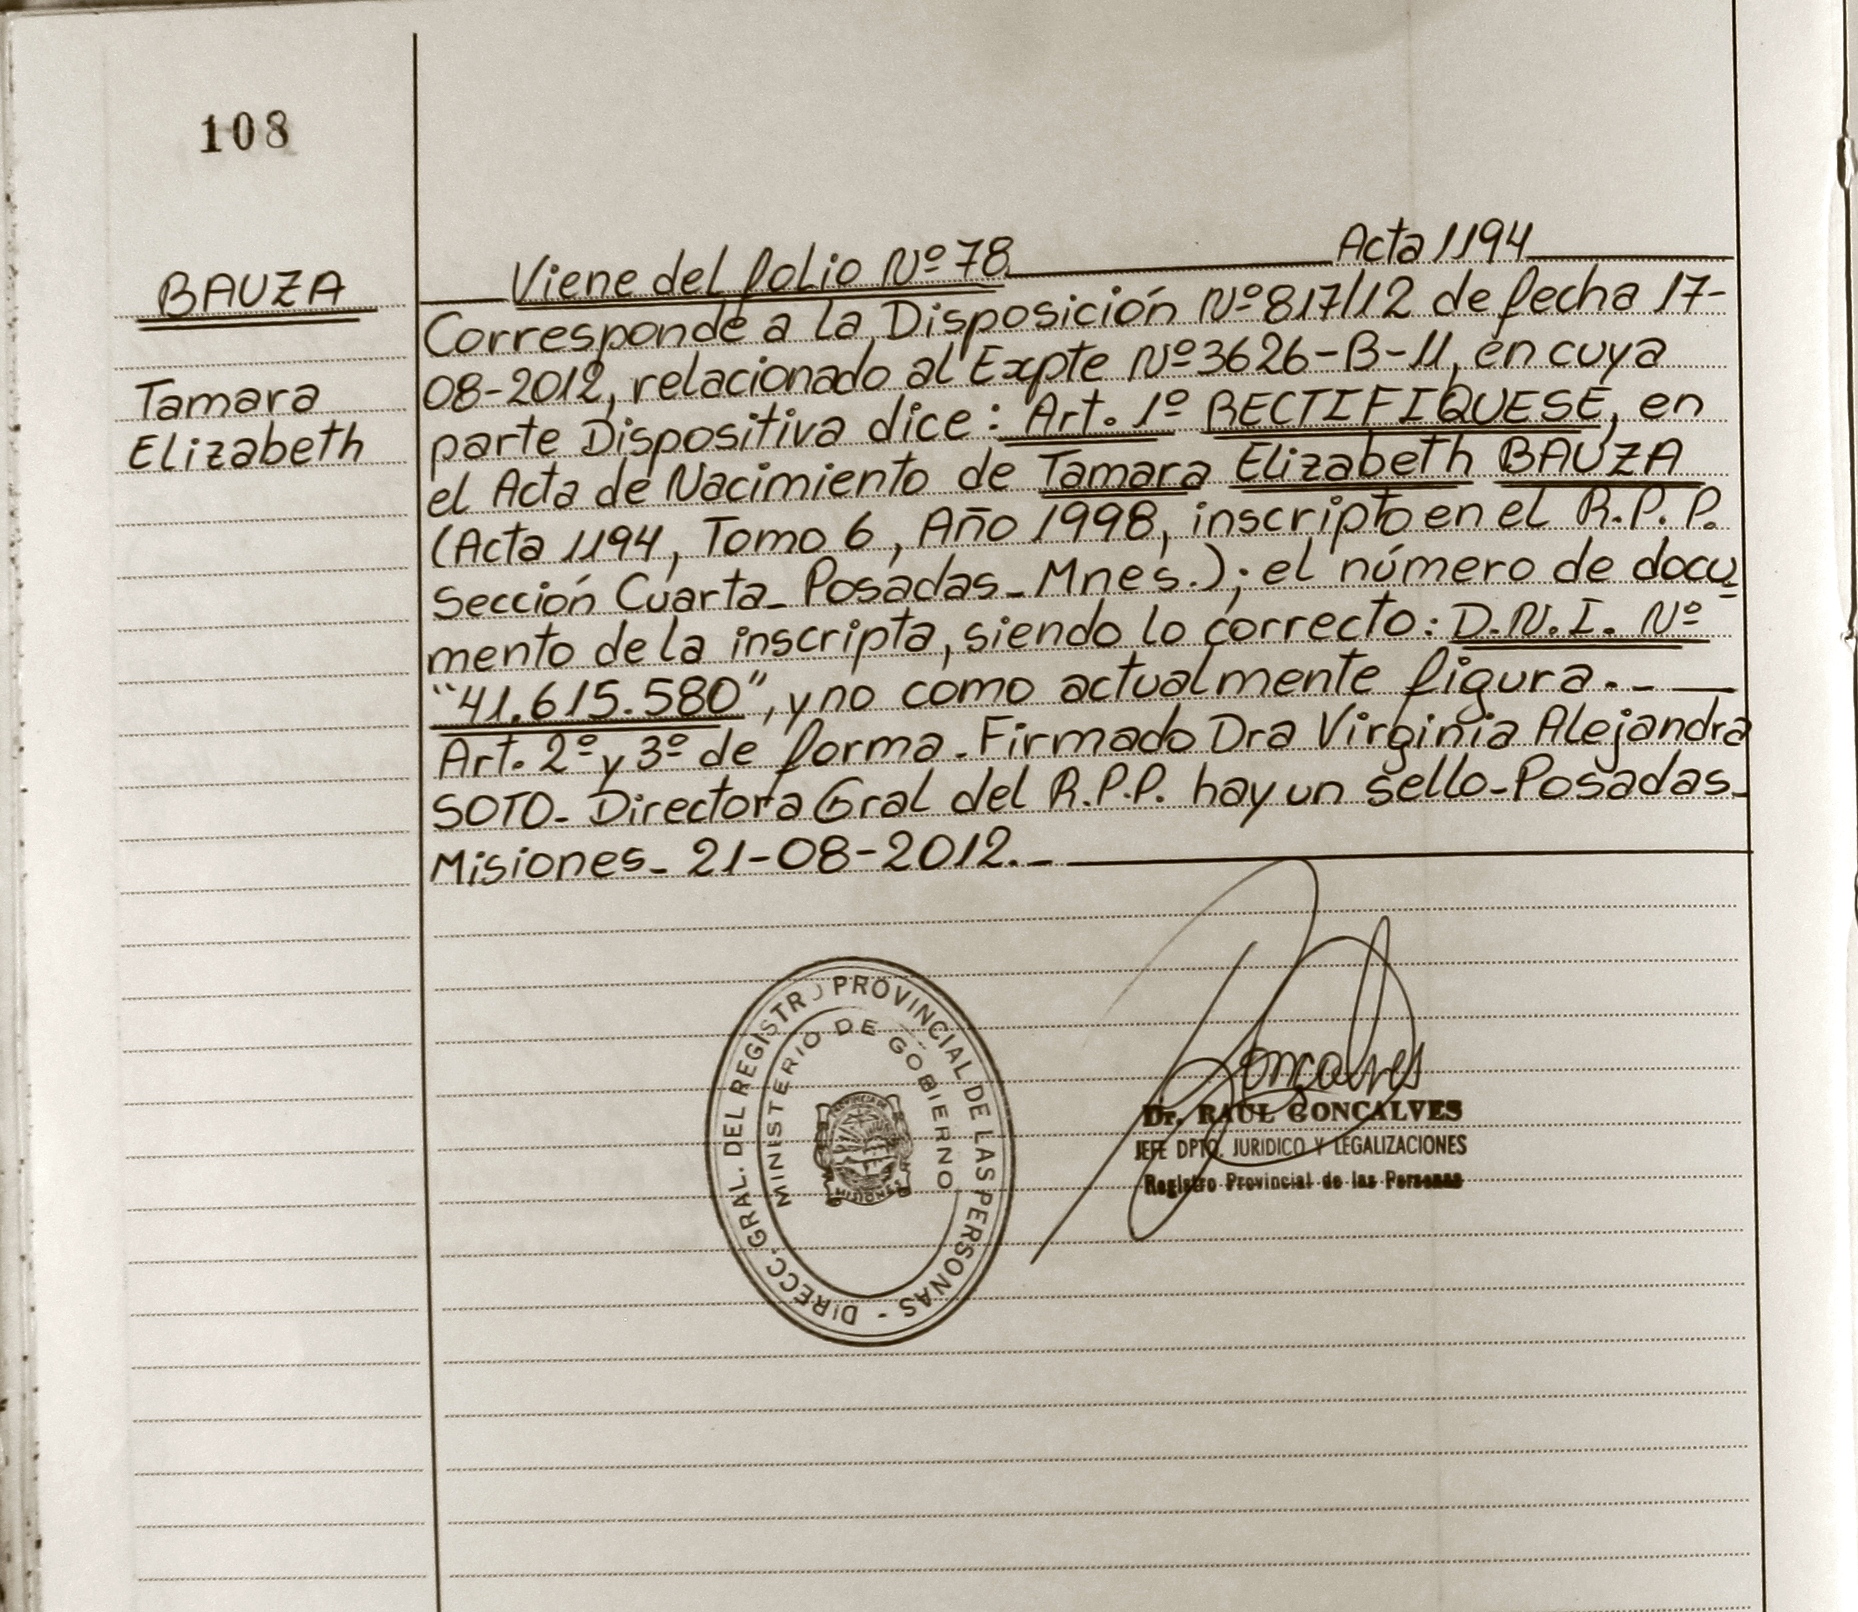 108
BAUZA
Tamara
Elizabeth
Viene del folio Nº 78 Acta 1194
Corresponde a la Disposición Nº 817/12 de fecha 17-
08-2012, relacionado al Expte Nº 3626-B-11, en cuya
parte Dispositiva dice: Art. 1º RECTIFIQUESE, en
el Acta de Nacimiento de Tamara Elizabeth BAUZA
(Acta 1194, Tomo 6, Año 1998, inscripto en el R.P.P.
Sección Cuarta_ Posadas_ Mnes.); el número de docu
mento de la inscripta, siendo lo correcto: D.N.I. Nº
"41.615.580", y no como actualmente figura._
Art. 2º y 3º de forma_ Firmado Dra Virginia Alejandra
SOTO_ Directora Gral del R.P.P. hay un sello_Posadas_
Misiones_ 21-08-2012._
DIRECC. GRAL. DEL REGISTRO PROVINCIAL DE LAS PERSONAS -
MINISTERIO DE GOBIERNO
PROVINCIA DE
MISIONES
Goncalves
Dr. RAUL GONCALVES
JEFE DPTO. JURIDICO Y LEGALIZACIONES
Registro Provincial de las Personas